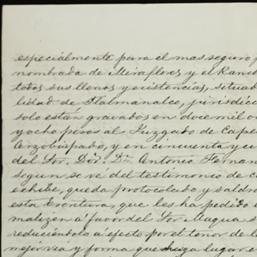 especialmente para el mas seguro p
nombrada de Miraflores y el Ranc
todos sus llenos y existencias, situad
lidad de Tlalmanalco, jurisdicc
solo están gravados en doce mil o
y ocho pesos al Juzgado de Cape
Arzobispado, y en cincuenta y c
del Sor. Dor. Dn. Antonio Fernan
segun se vé del testimonio de c
echebe, queda protocolado y saldr
esta Escritura, que les ha pedido
malizen á favor del Sor. Magua
reduciéndolo á efecto por el tenor de l
mejor via y forma que haya lugar e